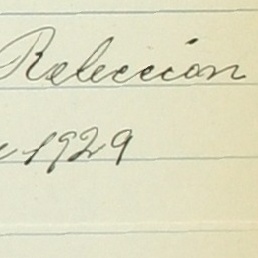 Releccion
1929